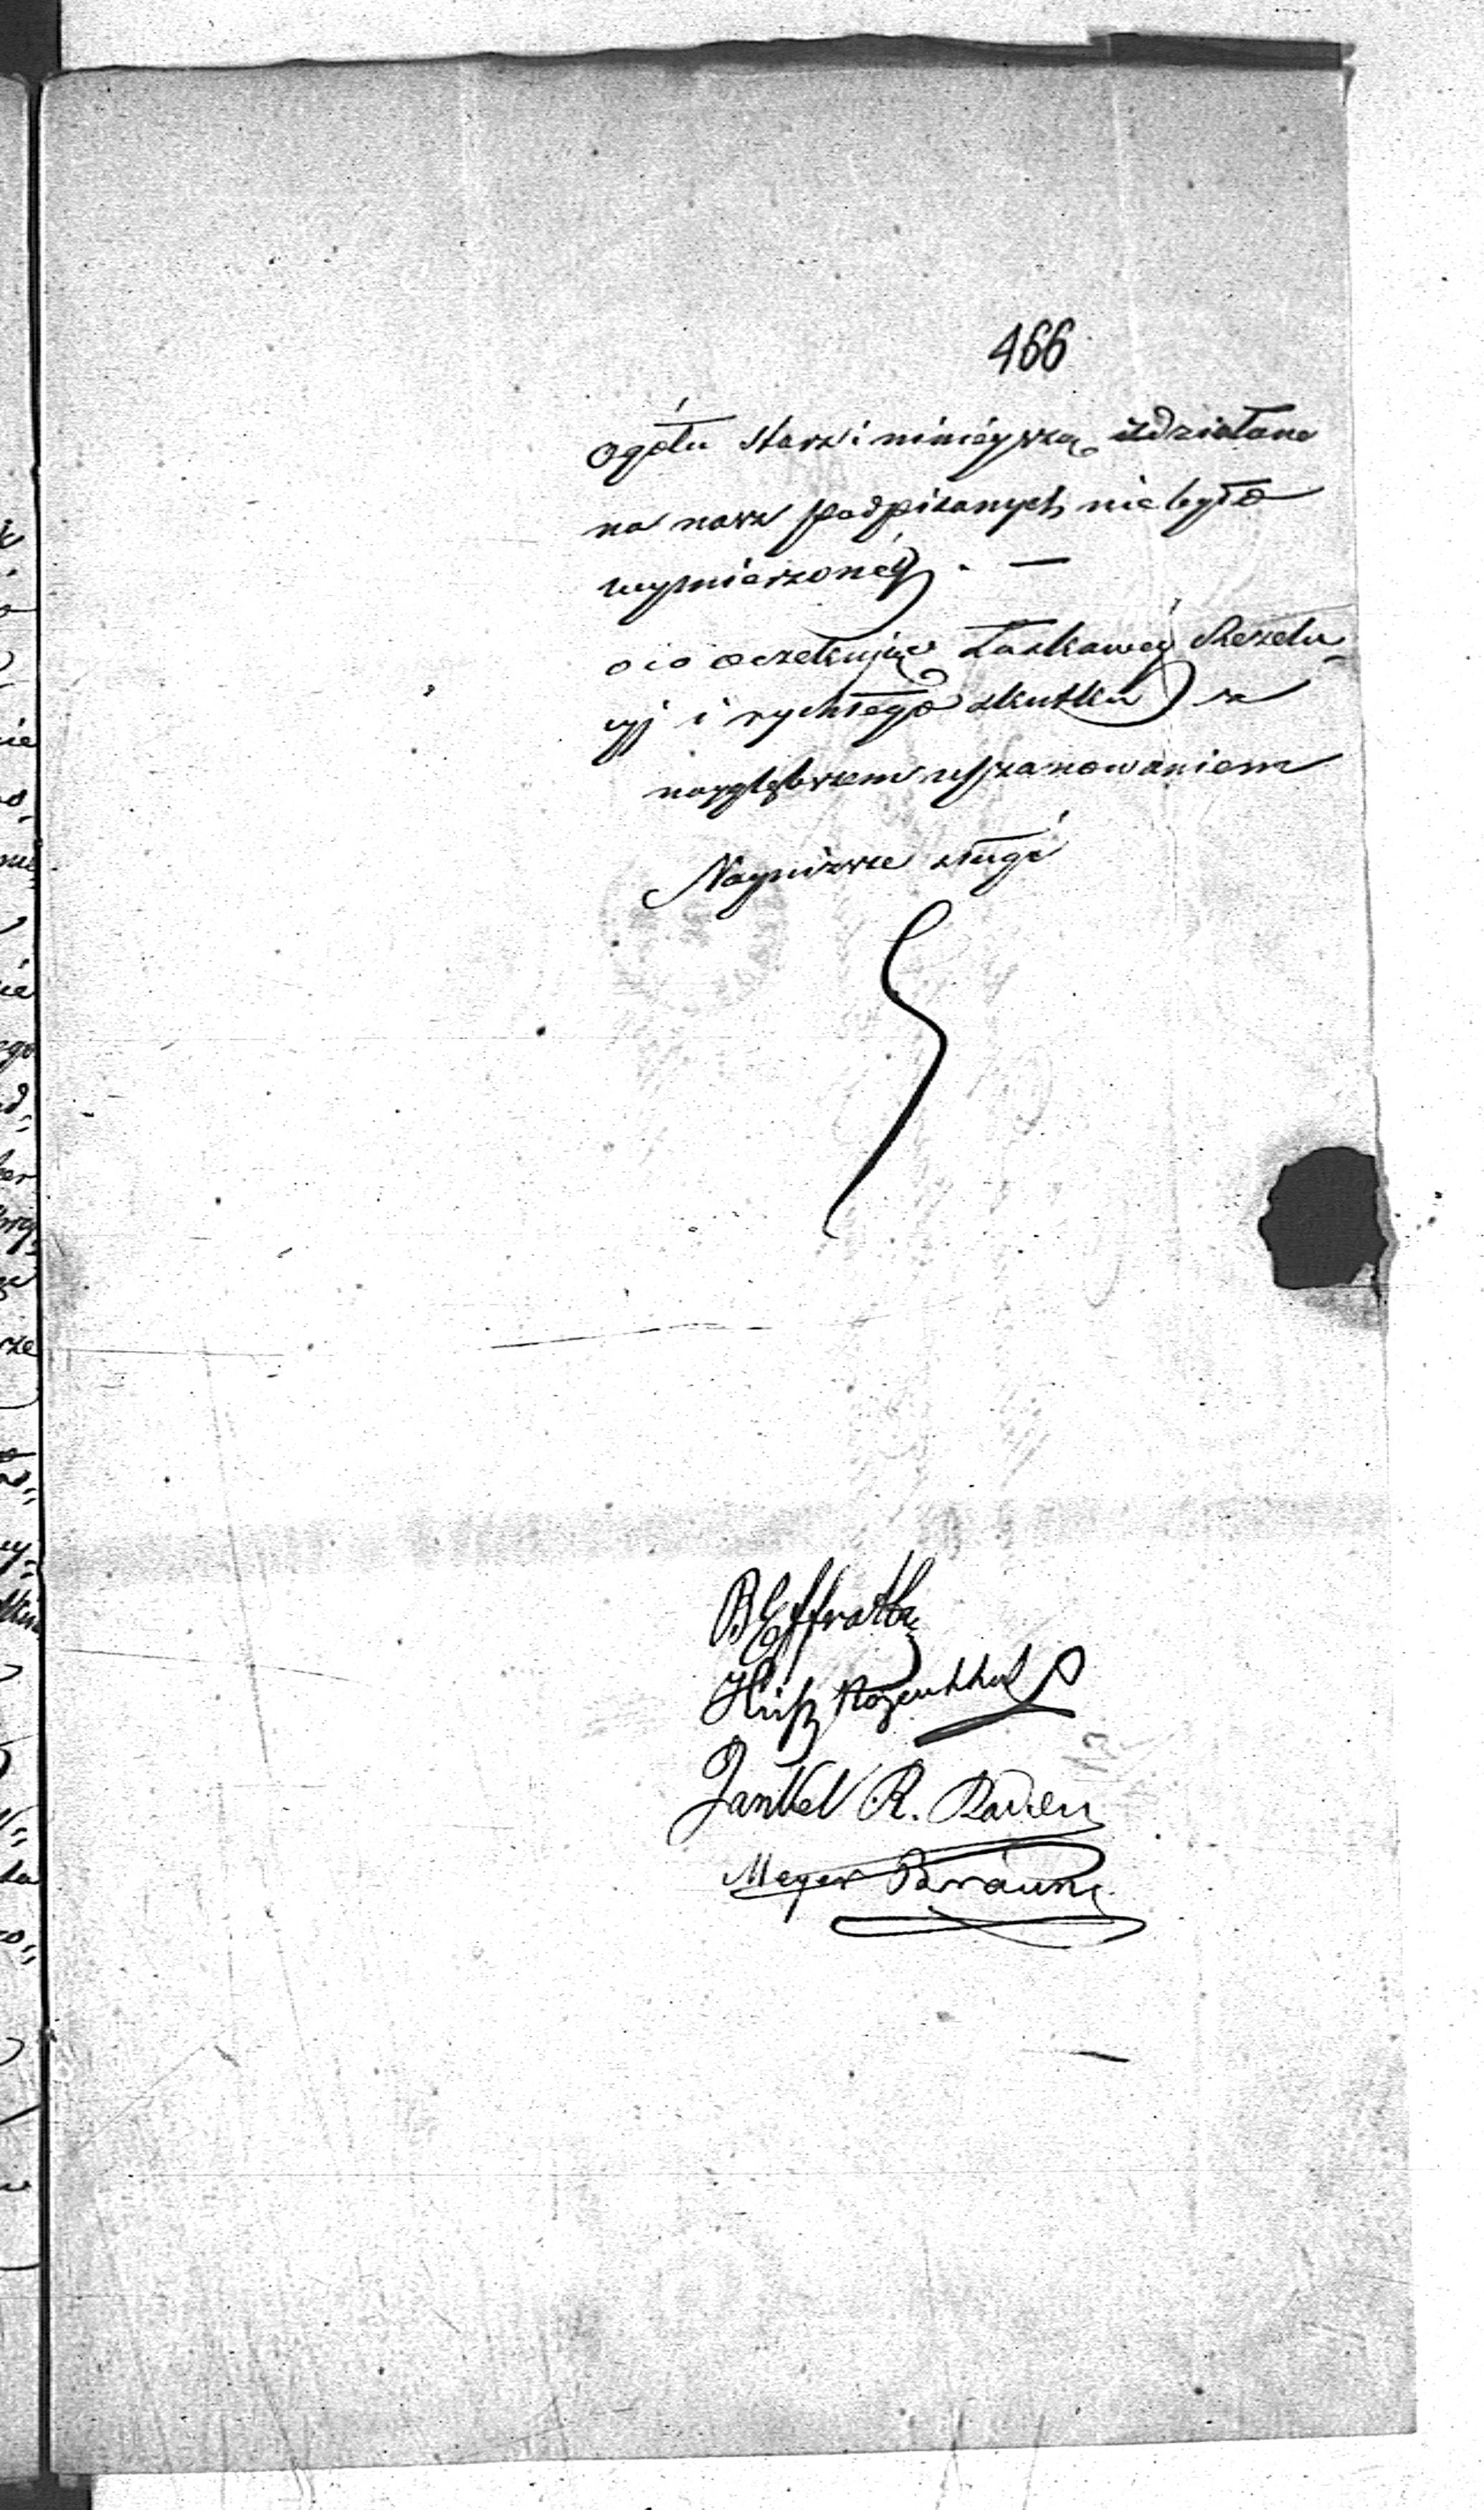 466
ogółu skarz i ninieyszą zdziałane
na nasz podpisanych nie było
wymierzoney. —
o co oczekując Łaskawey Rezolu-
cyi i rychłego skutku z
naygłębszem uszanowaniem
Nayniższe sługi
B Effratha
Hirsz Rozenthal
Jankel R. Rauen
Meyer Braun